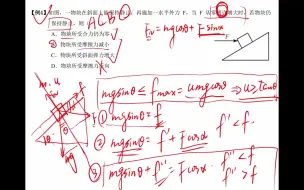 【例6】如图,一物块在斜面上保持静止,再施加一水平外力 F,当 F 从零开始增大时,若物块仍
保持静止,则 ACBD
A. 物块所受合力仍为零
B. 物块所受摩擦力减小
C. 物块所受斜面弹力增大
D. 物块所受摩擦力反向
F_N = mgcosθ + Fsinα
F
mg
mgsinθ ≤ f_max = umgcosθ ⇒ u ≥ tanθ
① mgsinθ = f
② mgsinθ = f' + Fcosα f' < f
③ mgsinθ + f'' = Fcosα f'' < f
f'' > f